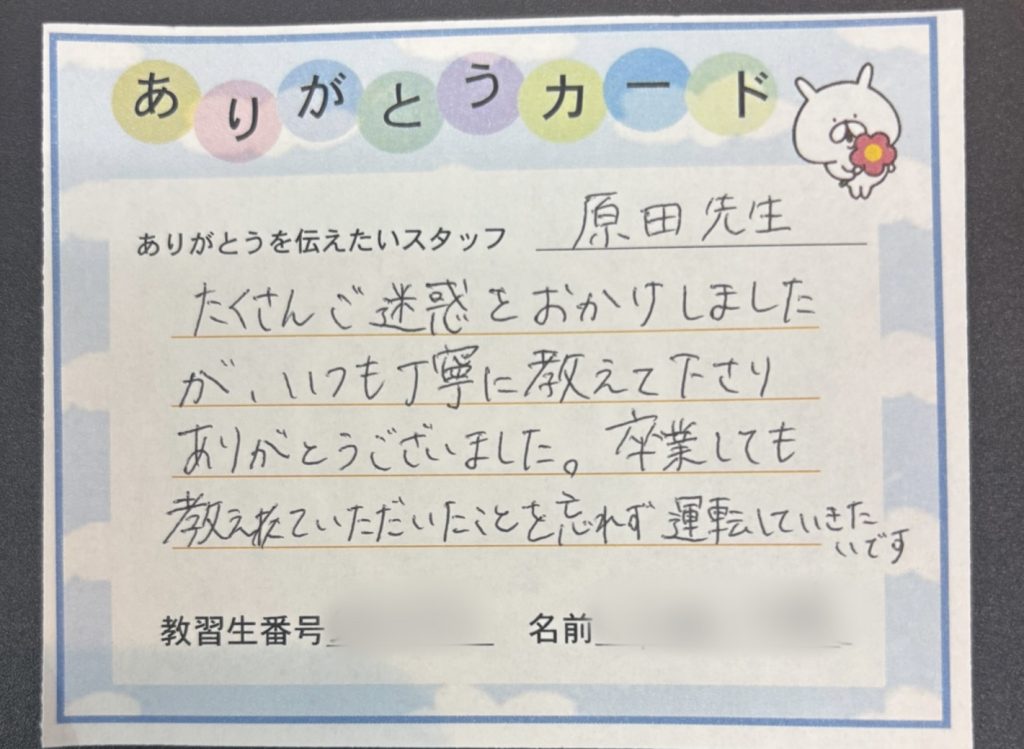 ありがとうカード
ありがとうを伝えたいスタッフ 原田先生
たくさんご迷惑をおかけしました
が、いつも丁寧に教えて下さり
ありがとうございました。卒業しても
教えていただいたことを忘れず運転していきた
いです
教習生番号 名前